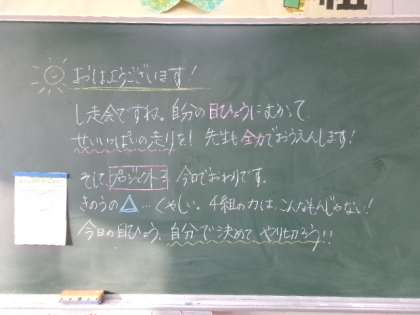 おはようございます!
し走会ですね。自分の目ひょうにむかって
せいいっぱいの走りを! 先生も全力でおうえんします!
そして プロジェクト3 今日でおわりです。
きのうの△…くやしい。4組の力は、こんなもんじゃない!
今日の目ひょう、自分で決めて、やり切ろう!!
組